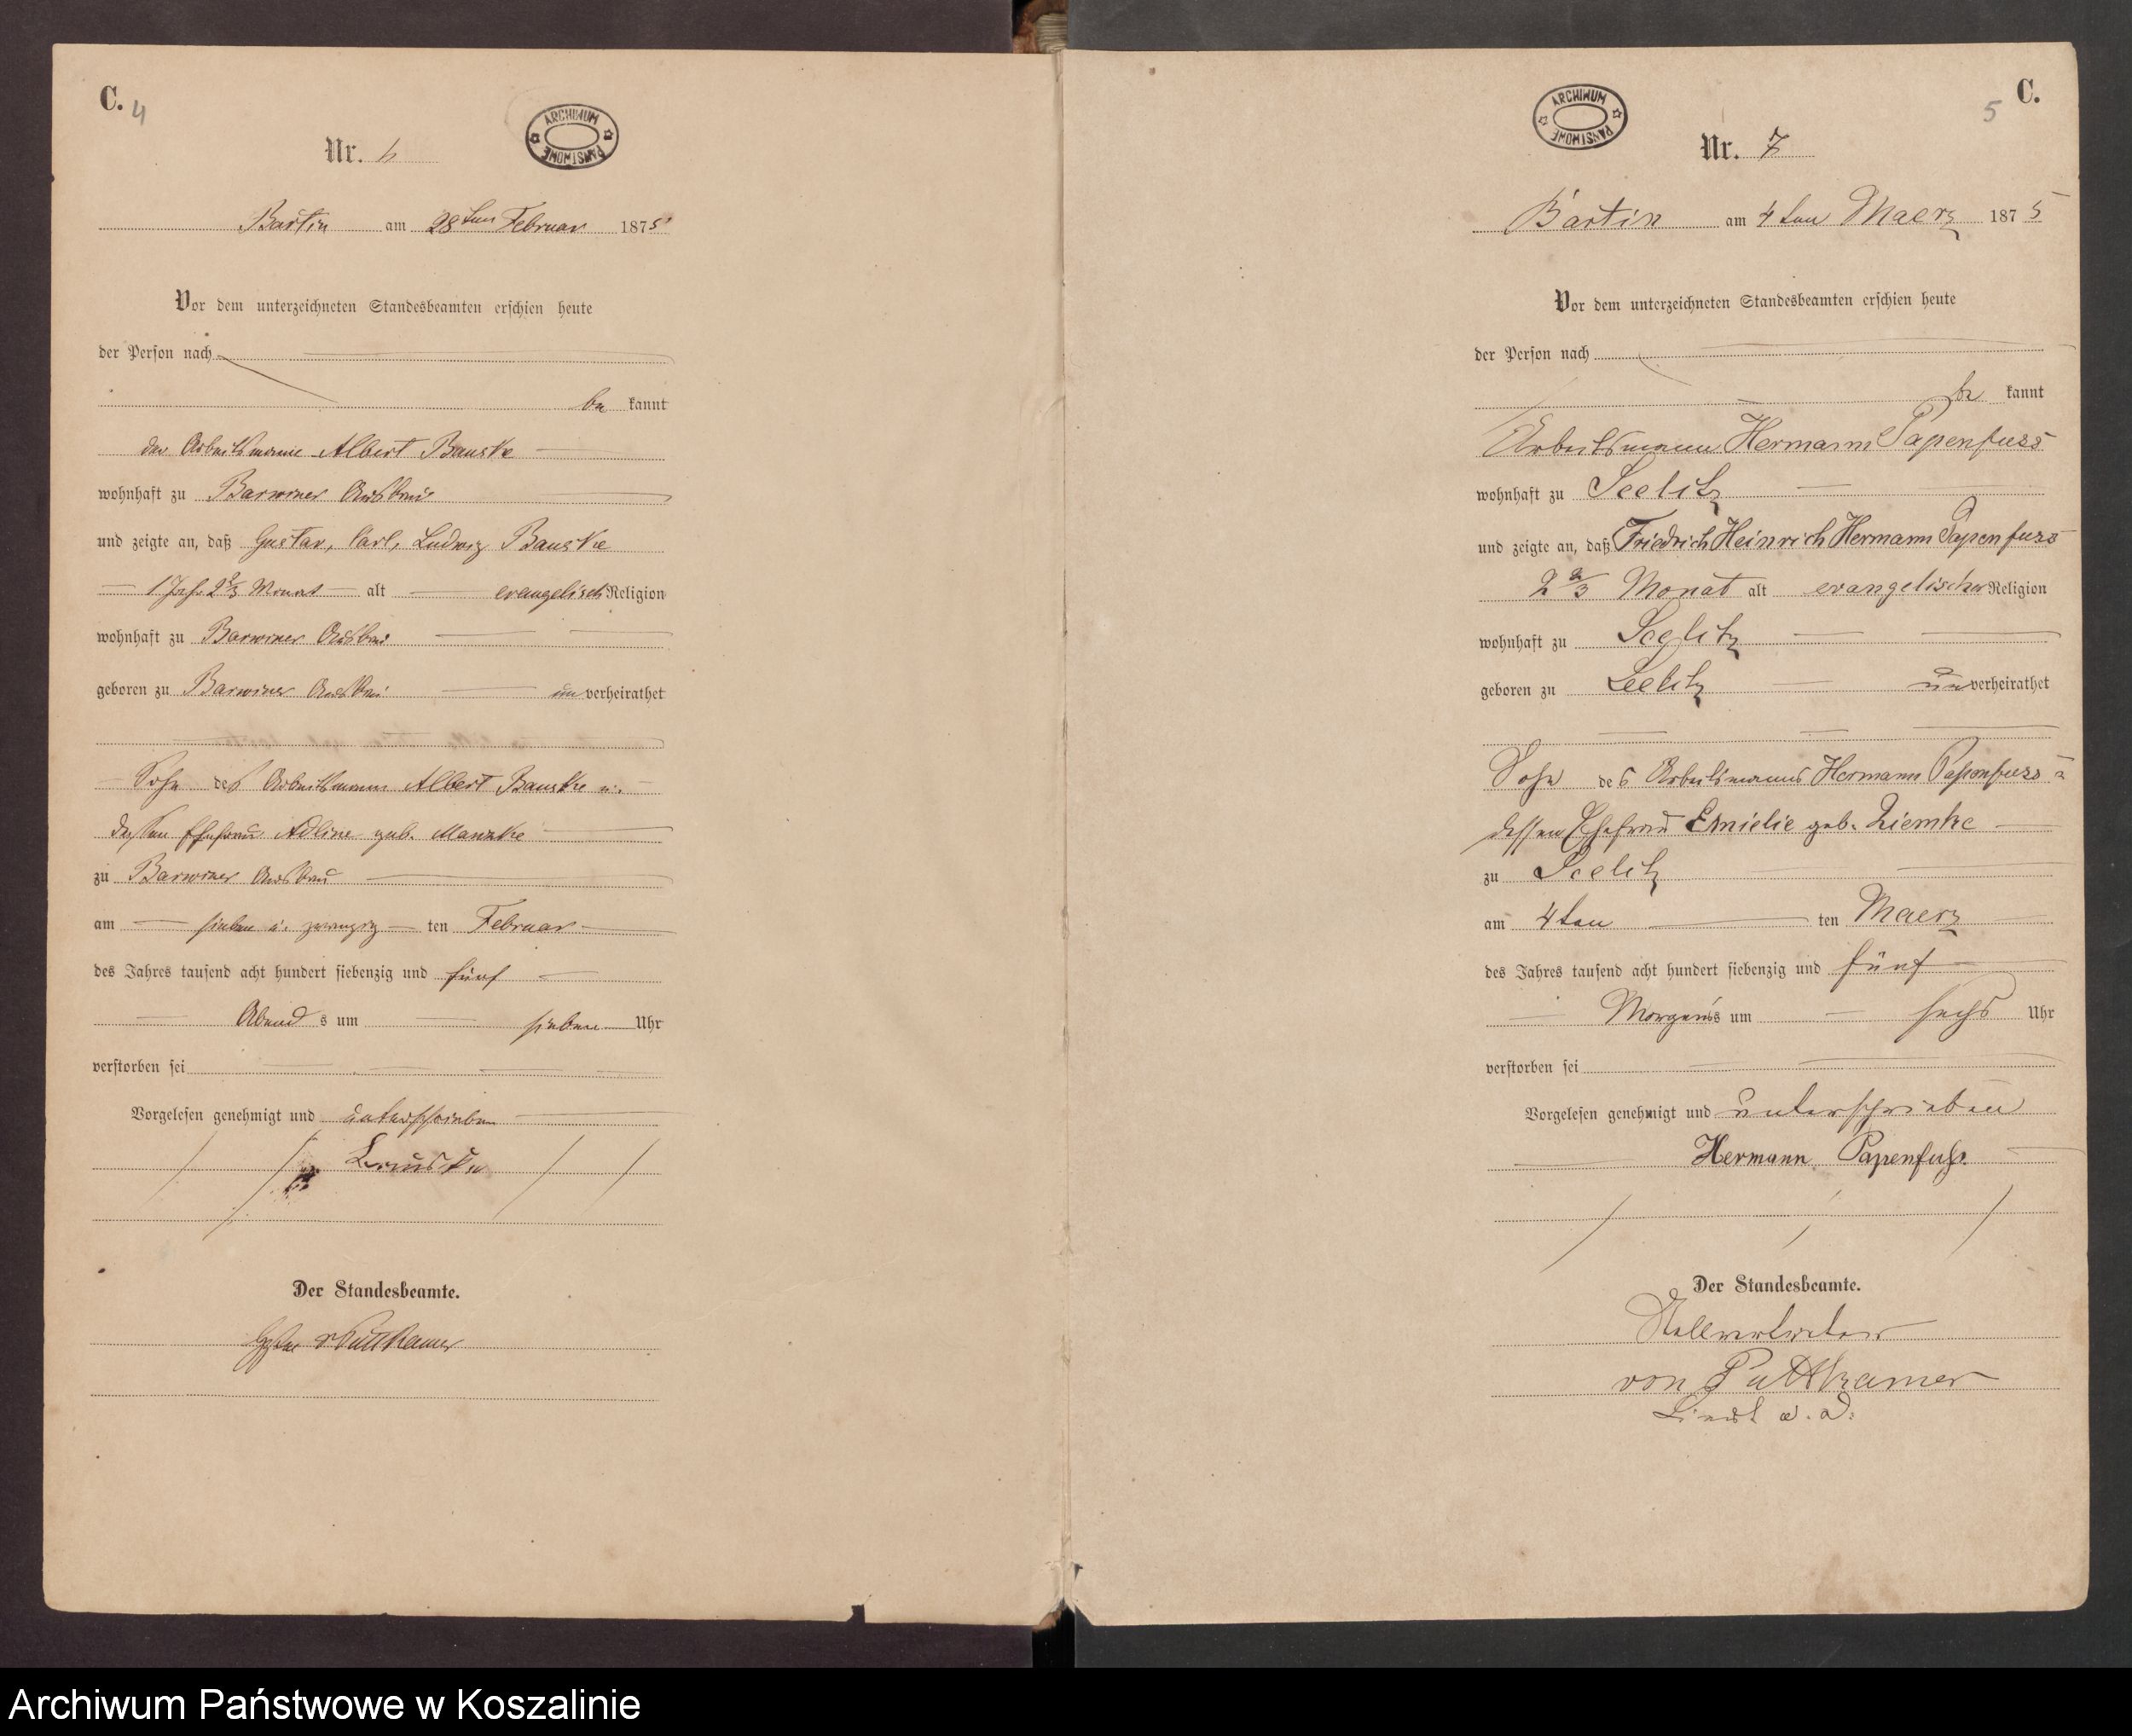 C. 4
ARCHIWUM PAŃSTWOWE
Nr. 6
Bartin am 28ten Februar 1875
Vor dem unterzeichneten Standesbeamten erschien heute
der Person nach
be kannt
der Arbeitsmann Albert Bauske
wohnhaft zu Barwiner Ausbau
und zeigte an, daß Gustav, Carl, Ludwig Bauske
1 Jahr 2 2/3 Monat alt evangelisch Religion
wohnhaft zu Barwiner Ausbau
geboren zu Barwiner Ausbau un verheirathet
Sohn des Arbeitsmann Albert Bauske u.
dessen Ehefrau Adline geb. Manzke
zu Barwiner Ausbau
am sieben u. zwanzig ten Februar
des Jahres tausend acht hundert siebenzig und fünf
Abend s um sieben Uhr
verstorben sei
Vorgelesen genehmigt und unterschrieben
Bauske
Der Standesbeamte.
v Puttkamer
5 C.
ARCHIWUM PAŃSTWOWE
Nr. 7
Bartin am 4ten Maerz 1875
Vor dem unterzeichneten Standesbeamten erschien heute
der Person nach
be kannt
Arbeitsmann Hermann Papenfuss
wohnhaft zu Seelitz
und zeigte an, daß Friedrich Heinrich Hermann Papenfuss
2 2/3 Monat alt evangelischer Religion
wohnhaft zu Seelitz
geboren zu Seelitz un verheirathet
Sohn des Arbeitsmanns Hermann Papenfuss u
dessen Ehefrau Emielie geb. Ziemke
zu Seelitz
am 4ten ten Maerz
des Jahres tausend acht hundert siebenzig und fünf
Morgens um sechs Uhr
verstorben sei
Vorgelesen genehmigt und unterschrieben
Hermann Papenfuß.
Der Standesbeamte.
Stellvertreter
von Puttkamer
a. D.
Archiwum Państwowe w Koszalinie